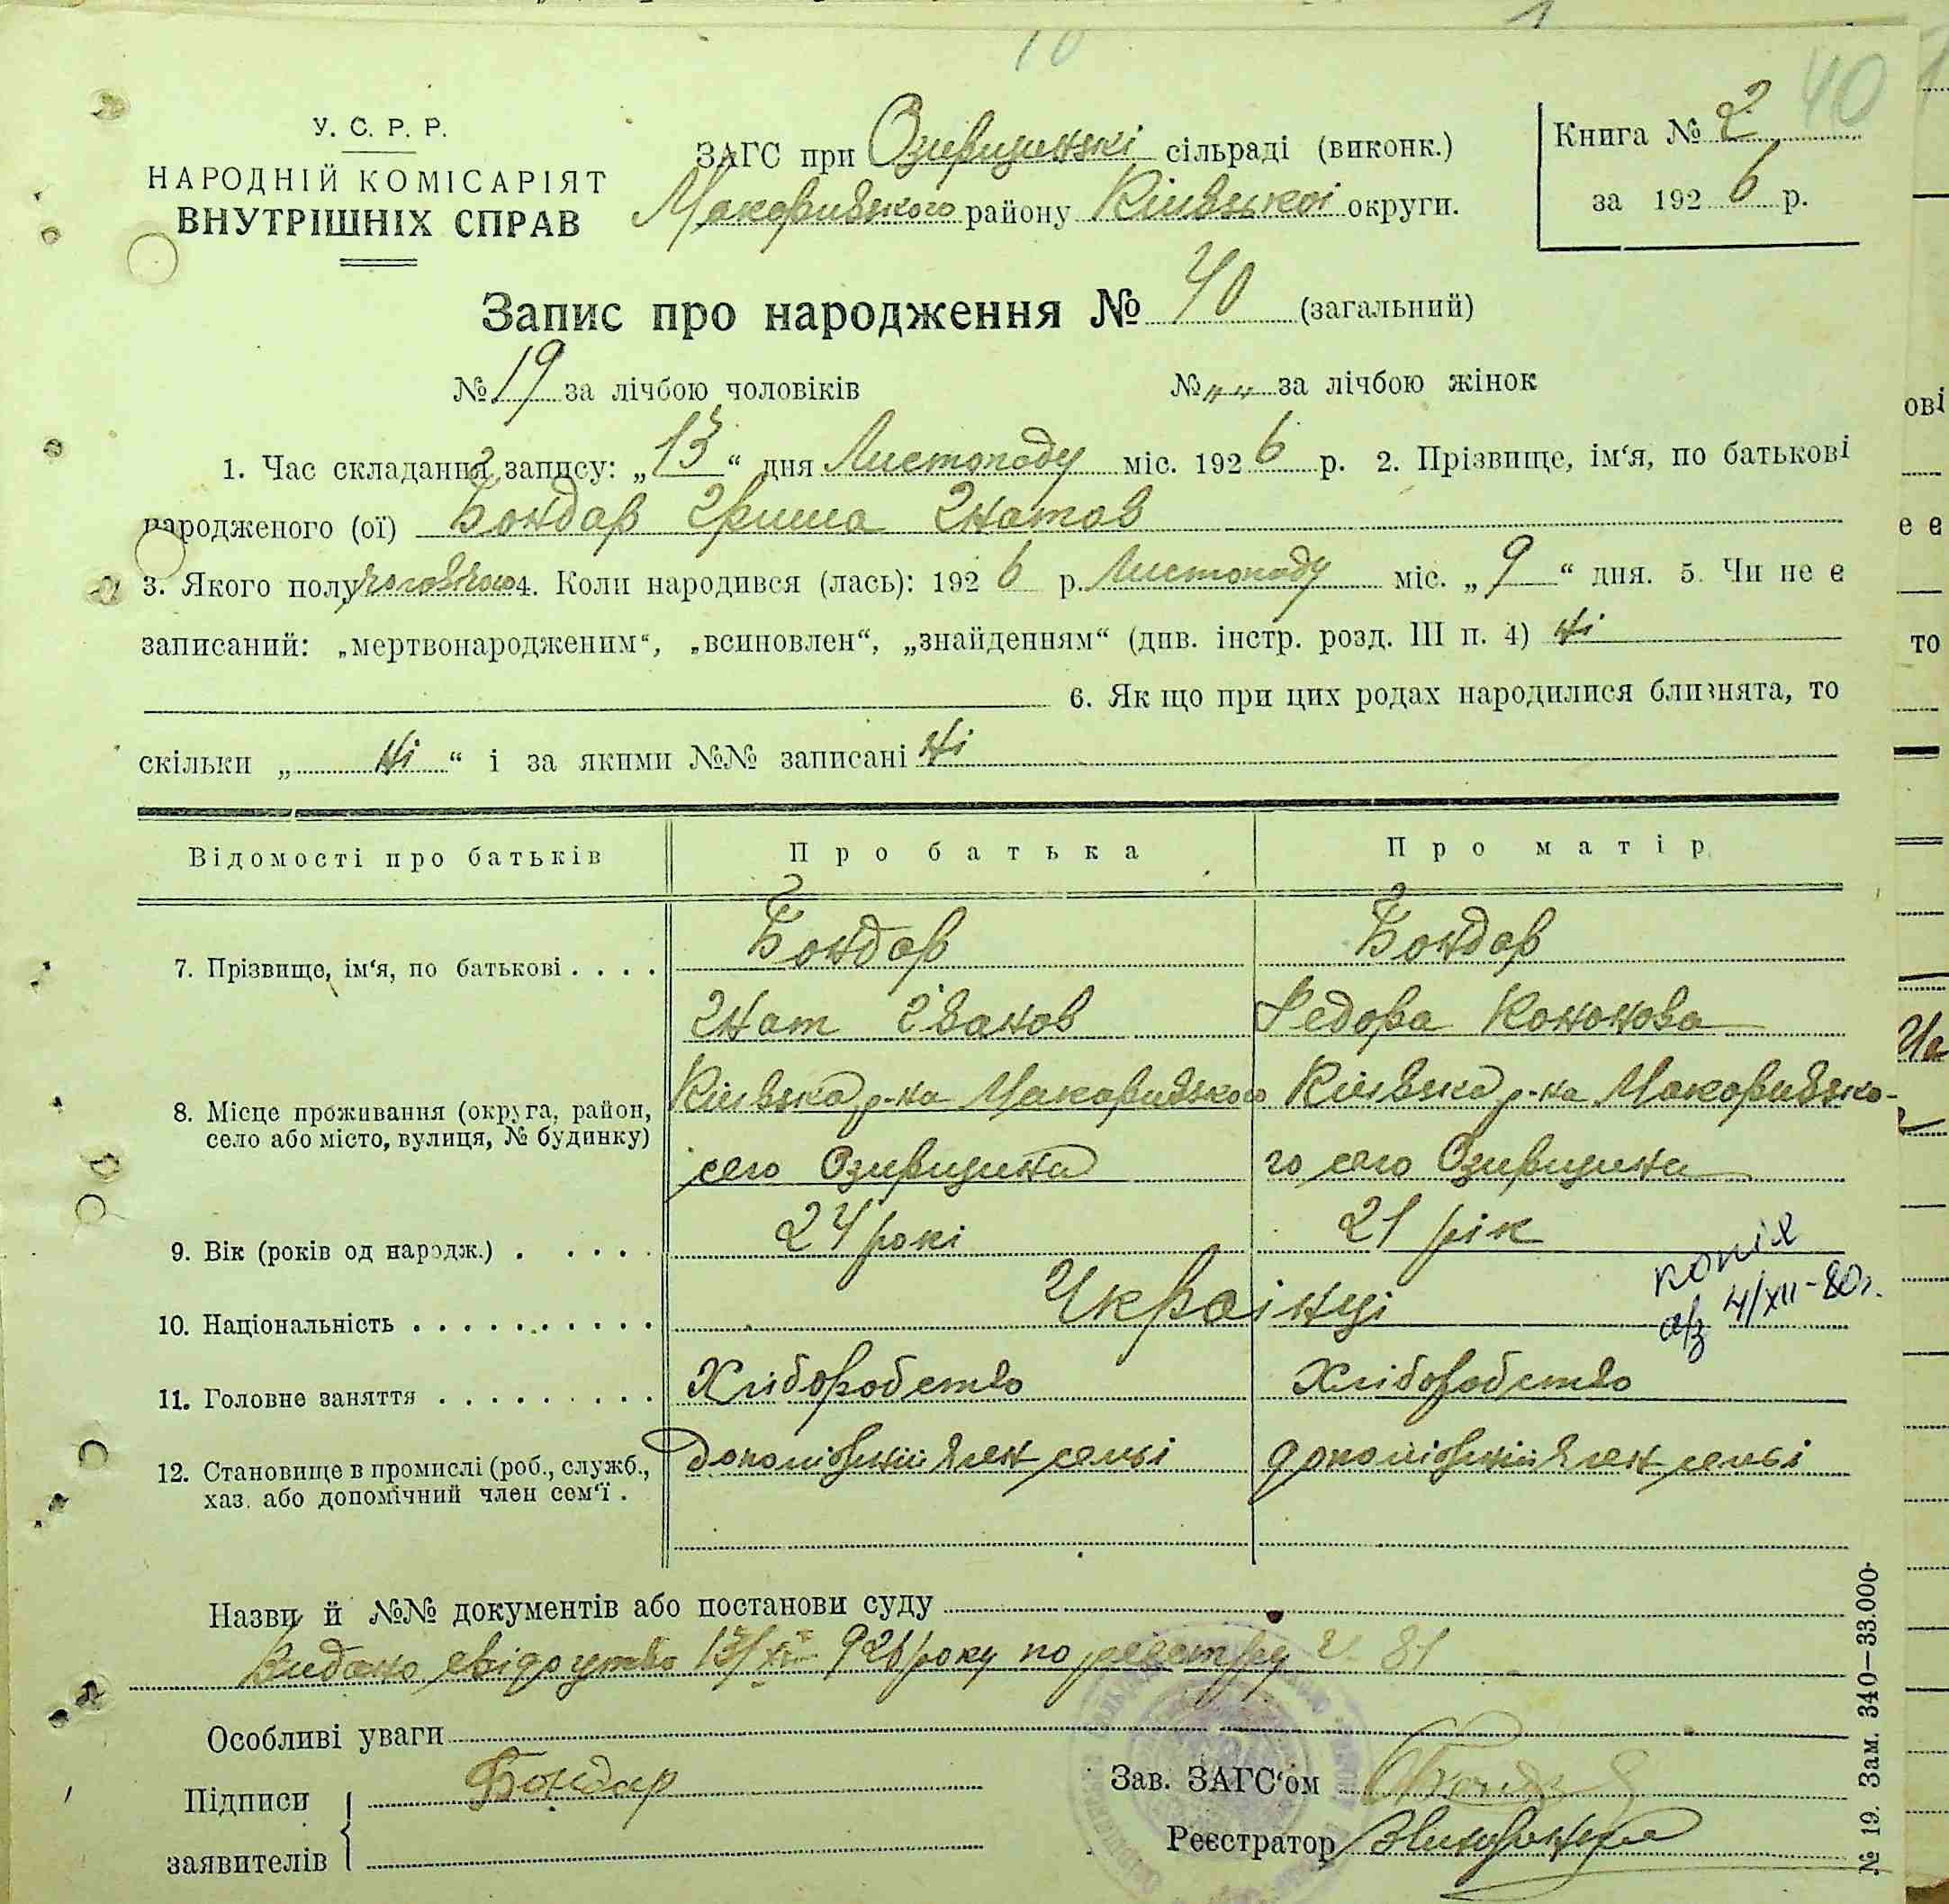 40
У. С. Р. Р.
НАРОДНІЙ КОМІСАРІЯТ
ВНУТРІШНІХ СПРАВ
ЗАГС при Озирщинскі сільраді (виконк.)
Макаривского району Киівскої округи.
Книга № 2
за 1926 р.
Запис про народження № 40 (загальний)
№ 19 за лічбою чоловіків № „ „ за лічбою жінок
1. Час складання запису: „13“ дня Листопаду міс. 1926 р. 2. Прізвище, ім‘я, по батькові
народженого (ої) Бондар Гриша Гнатов
3. Якого полу чоловічого 4. Коли народився (лась): 1926 р. Листопаду міс. „9“ дня. 5. Чи не є
записаний: „мертвонародженим“, „всиновлен“, „знайденням“ (див. інстр. розд. III п. 4) ні
6. Як що при цих родах народилися близнята, то
скільки „ ні “ і за якими №№ записані ні
Відомості про батьків Про батька Про матір
7. Прізвище, ім‘я, по батькові . . . . Бондар Бондар
Гнат Іванов Федора Кононова
8. Місце проживання (округа, район, Киівска р-на Макаривского Киівска р-на Макаривско-
село або місто, вулиця, № будинку) село Озирщина го село Озирщина
9. Вік (років од народж.) . . . . . 24 рокі 21 рік
10. Національність . . . . . . . . . . Українці
копія
4/XII-80г.
11. Головне заняття . . . . . . . . . Хліборобство Хліборобство
12. Становище в промислі (роб., служб., допоміжний член семьі допоміжний член семьі
хаз. або допомічний член сем‘ї .
Назви й №№ документів або постанови суду
Видано свідоцтво 13/XI 926 року по реестру № 81
Особливі уваги
Підписи Бондар Зав. ЗАГС‘ом
заявителів Реєстратор
№ 19. Зам. 340—33.000